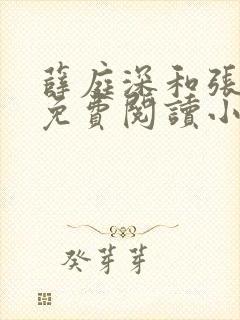 薛庭深和張
免費閱讀小
癸芽芽